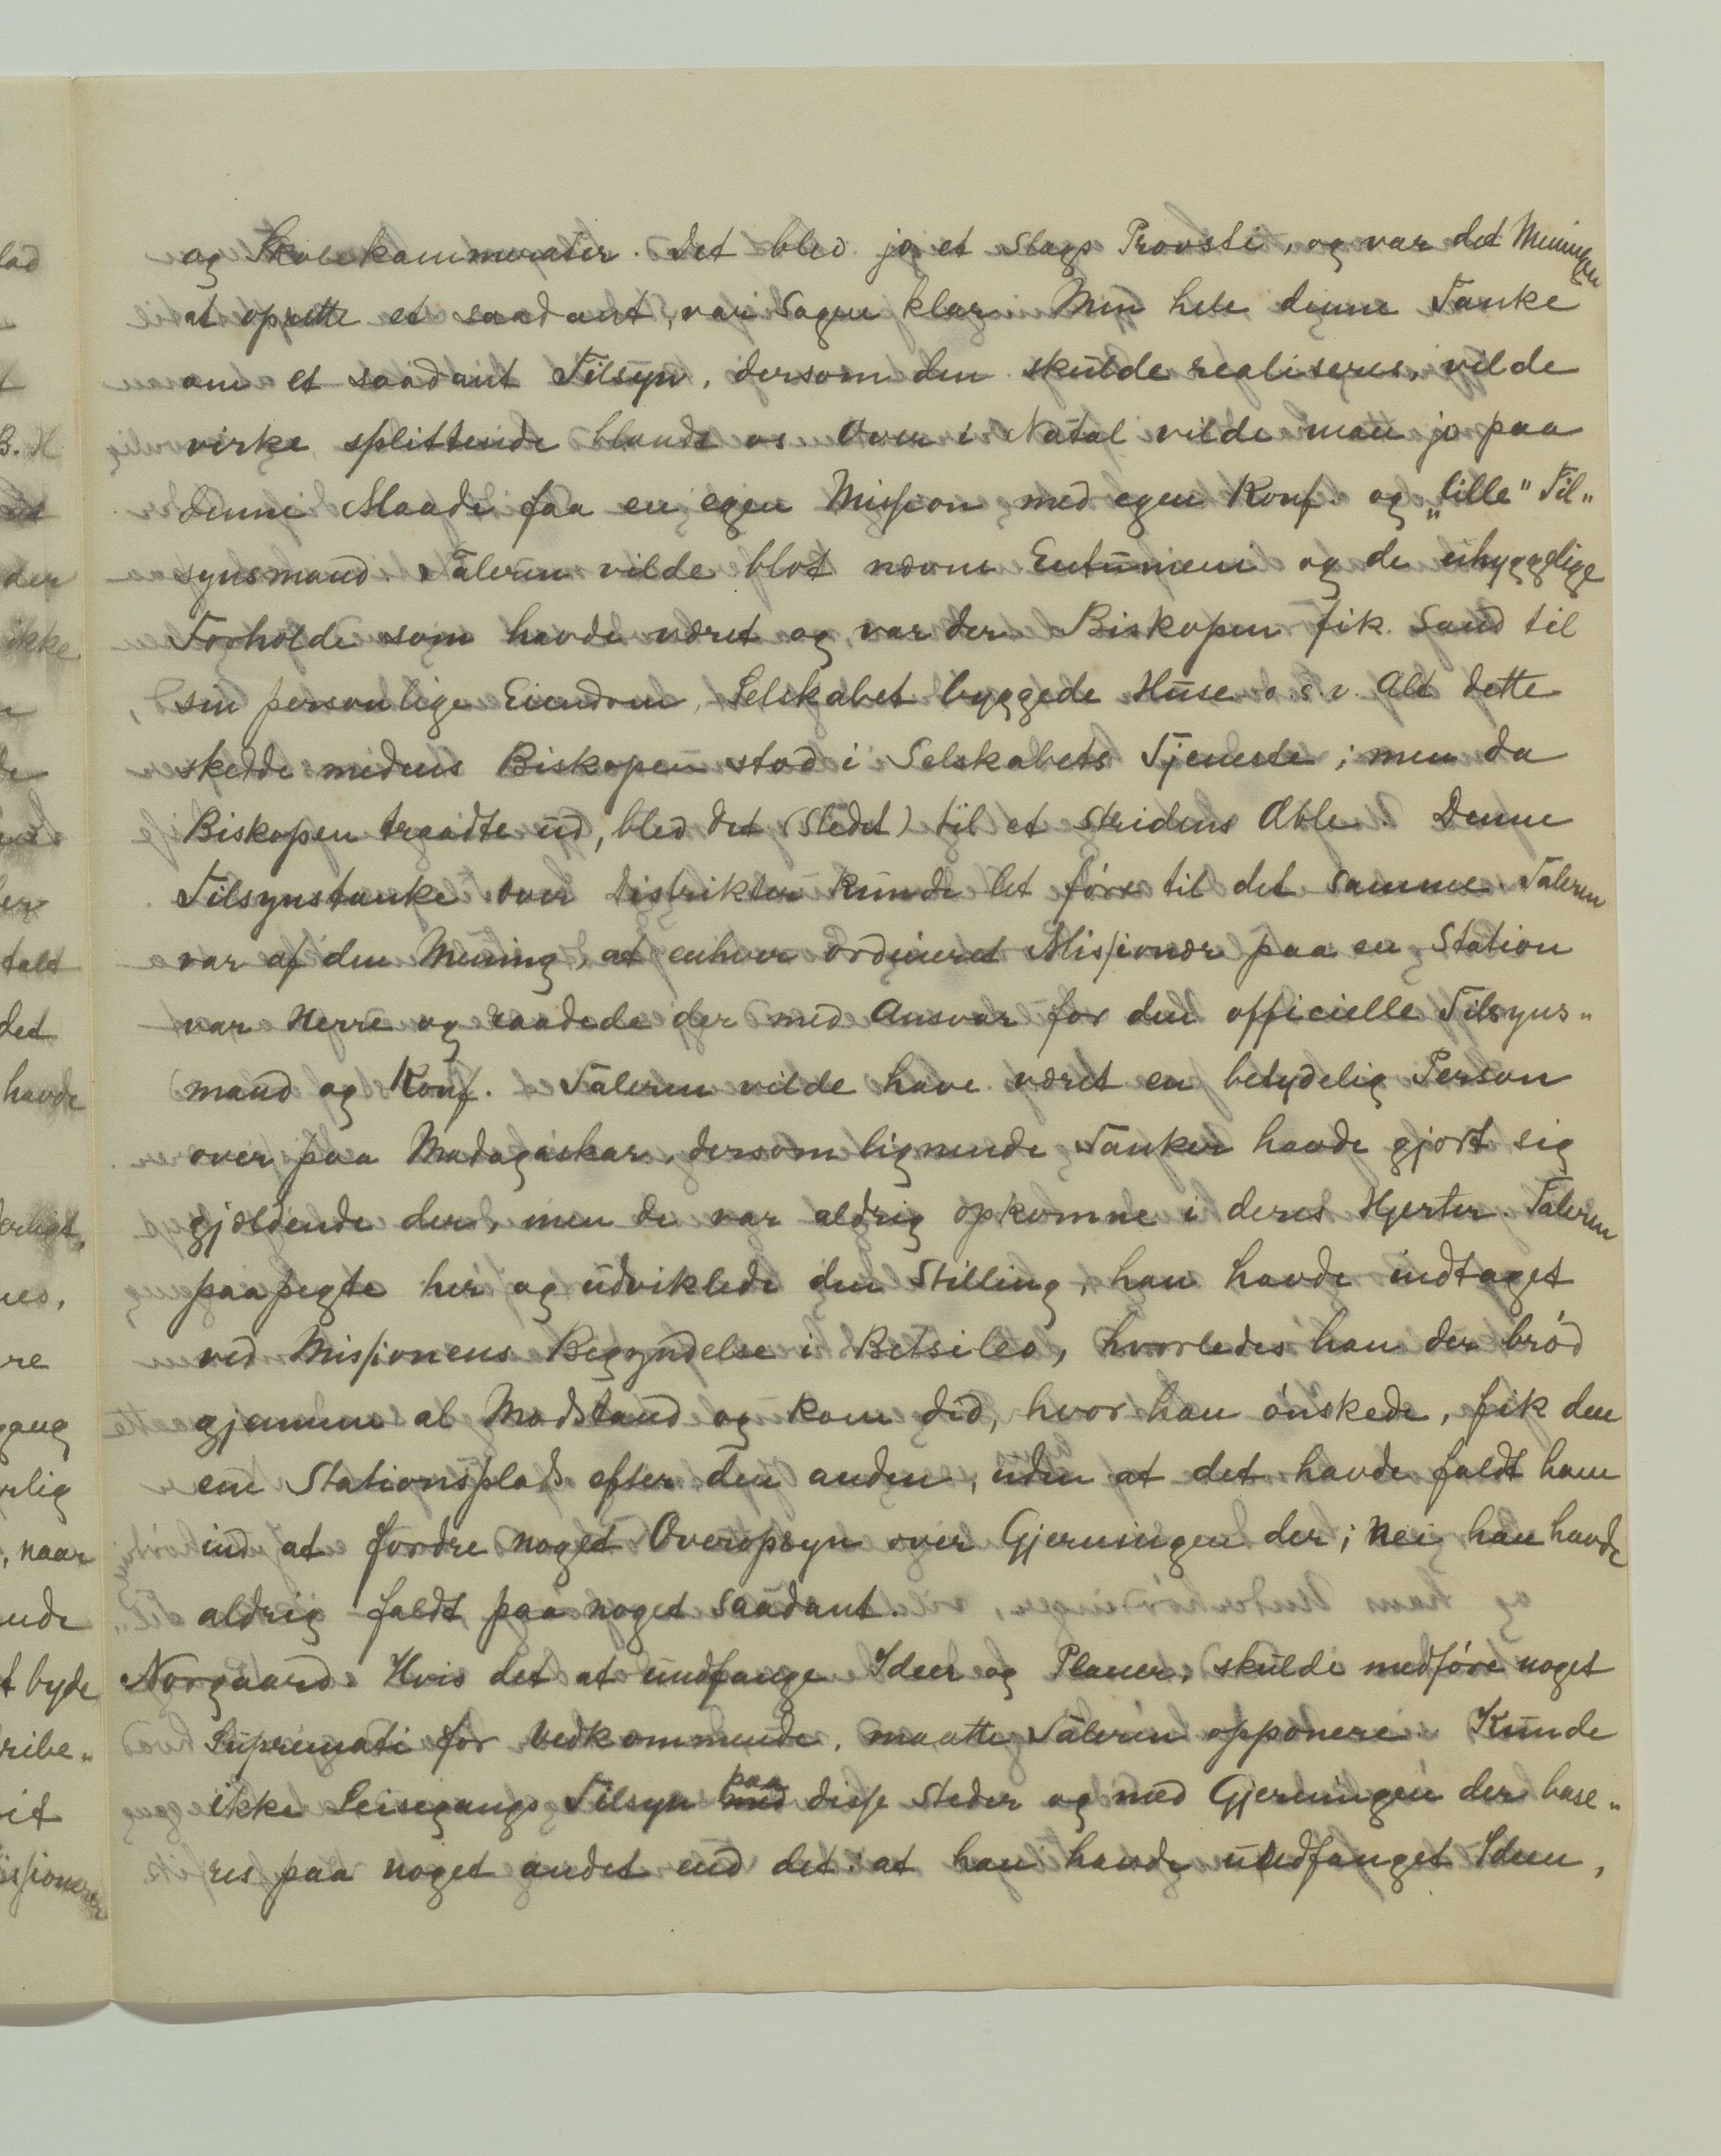 og Skolekammerater. Det blev jo et Slags Provsti, og var det Meningen
at oprette et saadant, var Sagen klar. Men hele denne Tanke
om et saadant Tilsyn, dersom den skulde realiseres, vilde
virke splittende blandt os. Over i Natal vilde man jo paa
denne Maade faa en egen Mission med egen Konf. og „lille" Til„
synsmand. Taleren vilde blot nævne Entumeni og de uhyggelige
Forholde som havde været og var der. Biskopen fik Land til
sin personlige Eiendom, Selskabet byggede Huse o.s.v. Alt dette
skedde medens Biskopen stod i Selskabets Tjeneste; men da
Biskopen traadte ud, blev det (Stedet) til et Stridens Æble. Denne
Tilsynstanke over Distrikter kunde let føre til det samme. Taleren
var af den Mening, at enhver ordineret Missionær paa en Station
var Herre og raadede der med Ansvar for den officielle Tilsyns„
mand og Konf. Taleren vilde have været en betydelig Person
over paa Madagaskar, dersom lignende Tanker havde gjort sig
gjældende der, men de var aldrig opkomne i deres Hjerter. Taleren
paapegte her og udviklede den Stilling, han havde indtaget
ved Missionens Begyndelse i Betsileo, hvorledes han der brød
gjennem al Modstand og kom did, hvor han ønskede, fik den
ene Stationsplads efter den anden, uden at det havde faldt ham
ind at fordre noget Overopsyn over Gjerningen der; nei han havde
aldrig faldt paa noget saadant.
Norgaard. Hvis det at undfange Ideer og Planer, skulde medføre noget
Supremati for Vedkommende, maatte Taleren opponere. Kunde
ikke Leisegangs Tilsyn med paa disse Steder og med Gjerningen der base„
res paa noget andet end det at han havde undfanget Ideen,